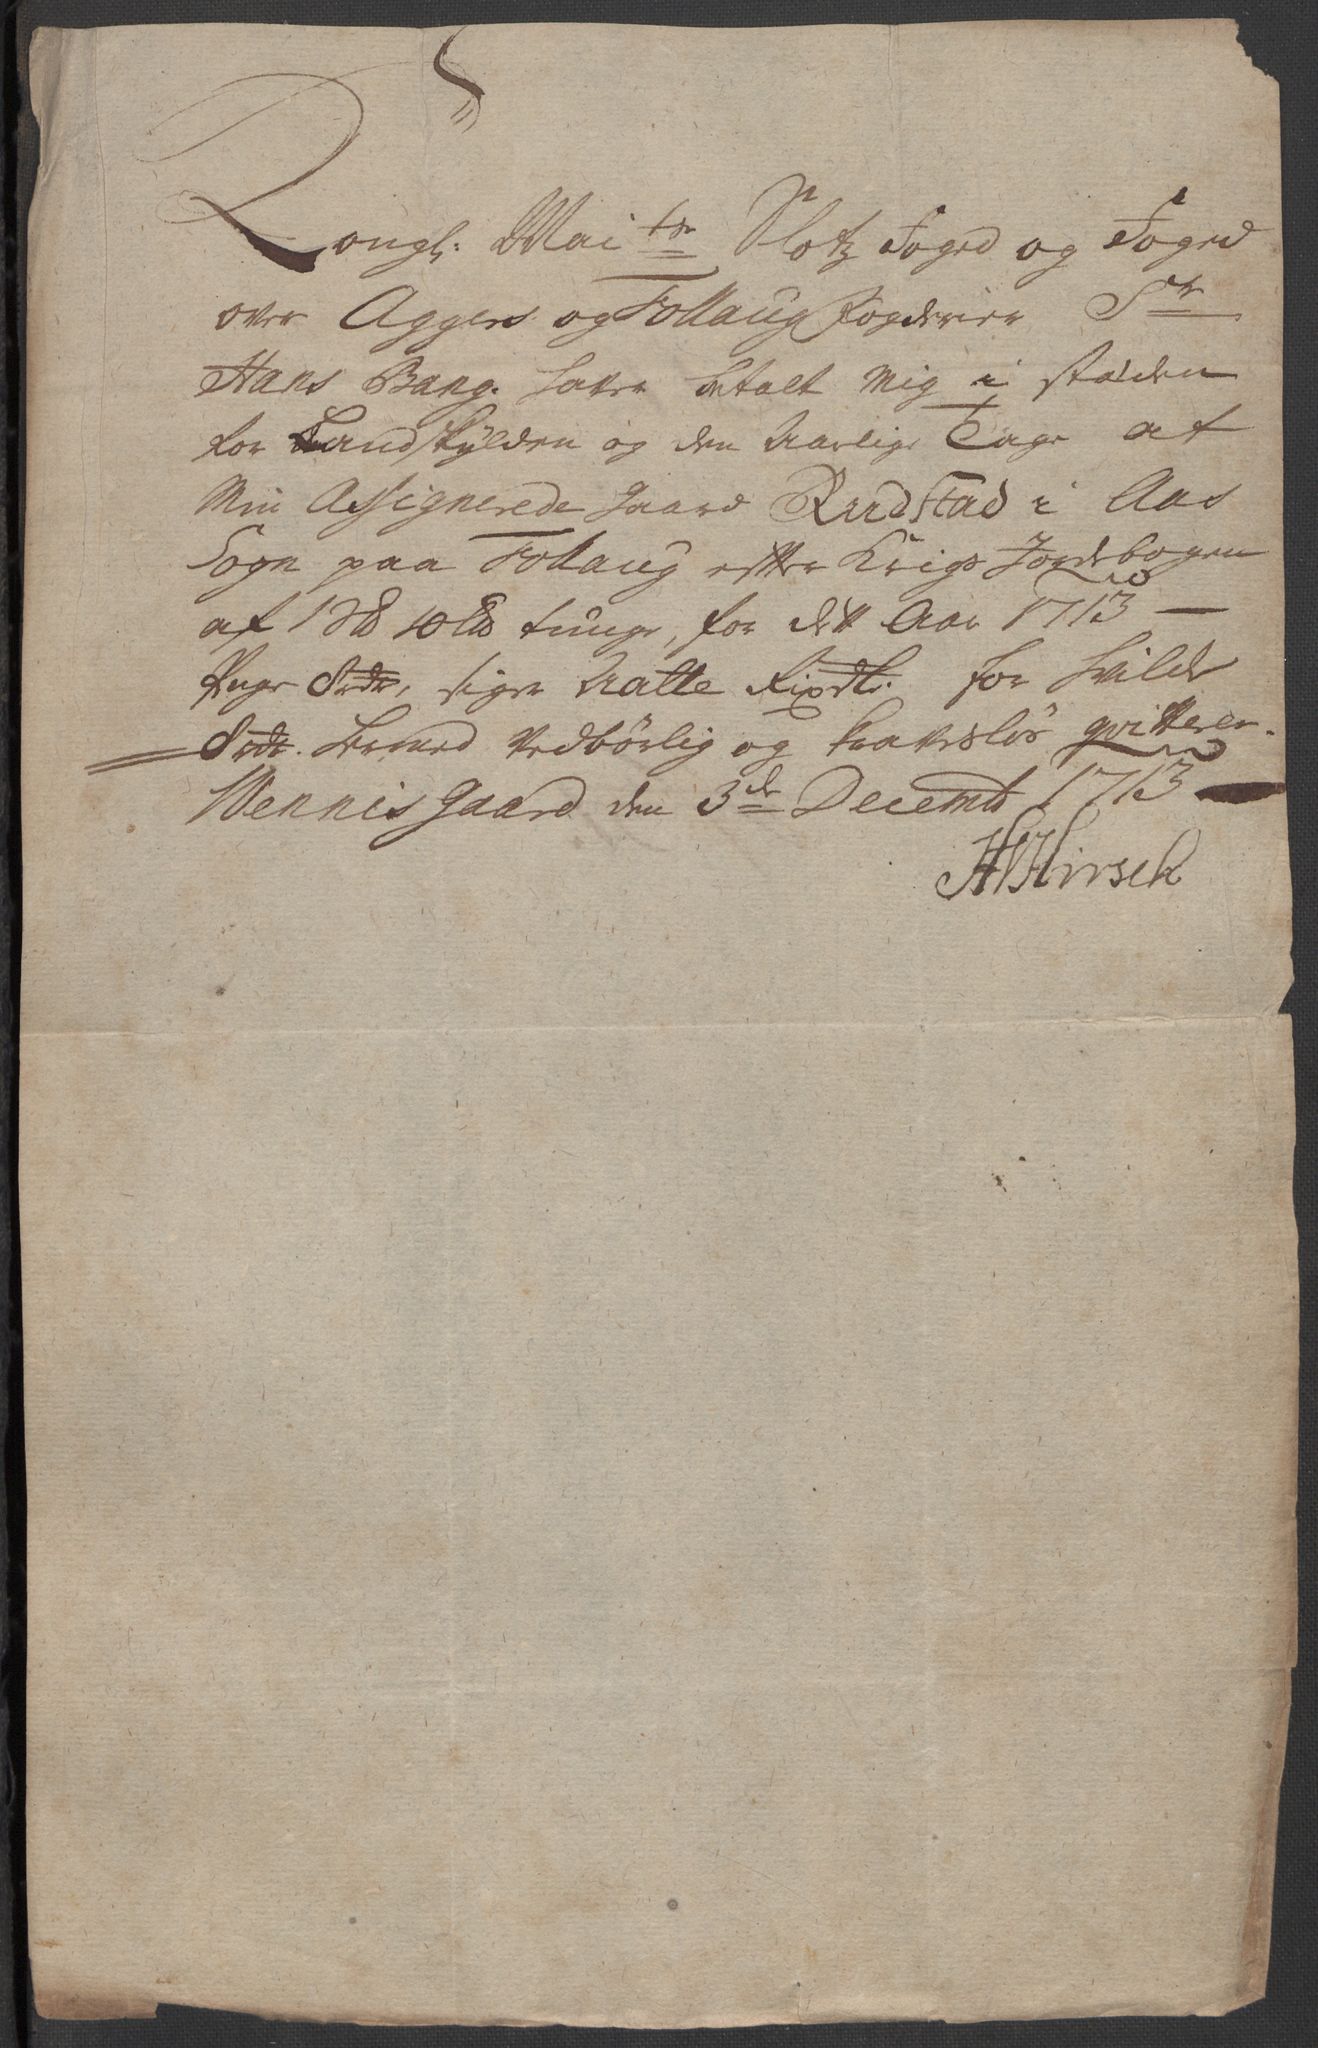 Kongl: Mai tz Slotz Foged og Foged
over Aggers og Follaug fogderier Sr
Hans Bang. haver betalt mig i stæden
for Landskylden og den aarlige Tage af
Min Assignerede gaard Rudstad i Aas
Sogn paa Follaug efter Krigs Jordebogen
af 1 10 tunge, for dett Aar 1713
Penge 8 rdr, siger aatte Rixdlr. for hvilde
8 rdr. hermed vedbørlig og kraveslös qvitterer.
Wennis gaard den 3de Decembr 1713
HVHirsch